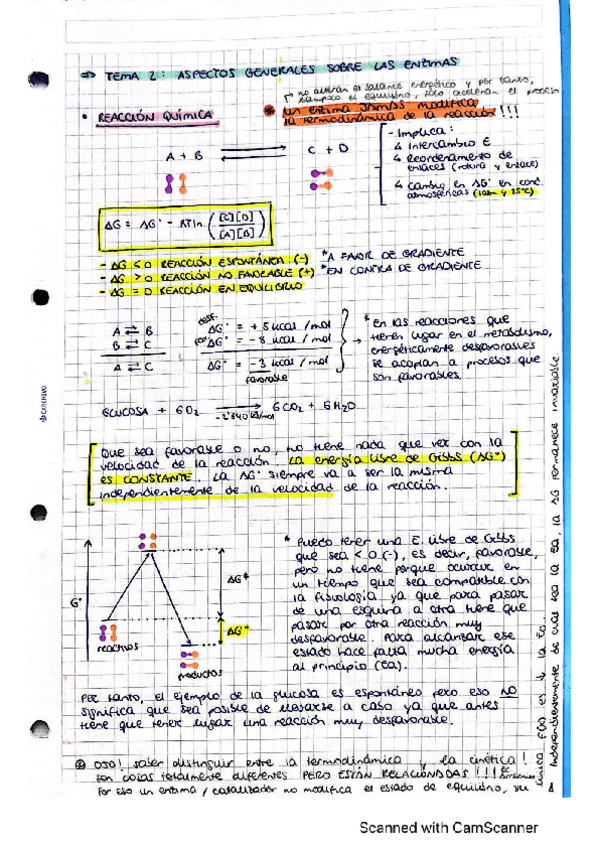 ⇒ TEMA 2: ASPECTOS GENERALES SOBRE LAS ENZIMAS
no alteran el balance energético y por tanto,
tampoco el equilibrio, solo aceleran el proceso
• REACCIÓN QUÍMICA
* un enzima JAMÁS modifica
la termodinámica de la reacción!!!
A + B ⇌ C + D
- Implica:
↳ Intercambio E
↳ Reordenamiento de
enlaces (rotura y enlace)
↳ Cambio en ΔG° en cond.
atmosféricas (1atm y 25°C)
ΔG = ΔG° - RTln ([C][D] / [A][B])
- ΔG < 0 REACCIÓN ESPONTÁNEA (-) * A FAVOR DE GRADIENTE
- ΔG > 0 REACCIÓN NO FAVORABLE (+) * EN CONTRA DE GRADIENTE
- ΔG = 0 REACCIÓN EN EQUILIBRIO
A ⇌ B ΔG° = + 5 kcal / mol
B ⇌ C ΔG° = - 8 kcal / mol
A ⇌ C ΔG° = - 3 kcal / mol
favorable
* En las reacciones que
tienen lugar en el metabolismo,
energéticamente desfavorables
se acoplan a procesos que
son favorables.
GLUCOSA + 6O2 → 6CO2 + 6H2O
Que sea favorable o no, no tiene nada que ver con la
velocidad de la reacción. La energía libre de Gibbs (ΔG°)
es CONSTANTE. La ΔG° siempre va a ser la misma
independientemente de la velocidad de la reacción.
G°
reactivos
productos
ΔG‡
ΔG°
* Puedo tener una E. libre de Gibbs
que sea < 0 (-), es decir, favorable,
pero no tiene porque ocurrir en
un tiempo que sea compatible con
la fisiología ya que para pasar
de una esquina a otra tiene que
pasar por otra reacción muy
desfavorable. Para alcanzar ese
estado hace falta mucha energía
al principio (Ea).
Por tanto, el ejemplo de la glucosa es espontáneo pero eso NO
significa que sea posible de llevarse a cabo ya que antes
tiene que tener lugar una reacción muy desfavorable.
* OJO! saber distinguir entre la termodinámica y la cinética!
son cosas totalmente diferentes PERO ESTÁN RELACIONADAS!!!
Por eso un enzima / catalizador no modifica el estado de equilibrio, su
única función es ↓ la Ea.
Independientemente de cual sea la Ea, la ΔG permanece invariable
Scanned with CamScanner